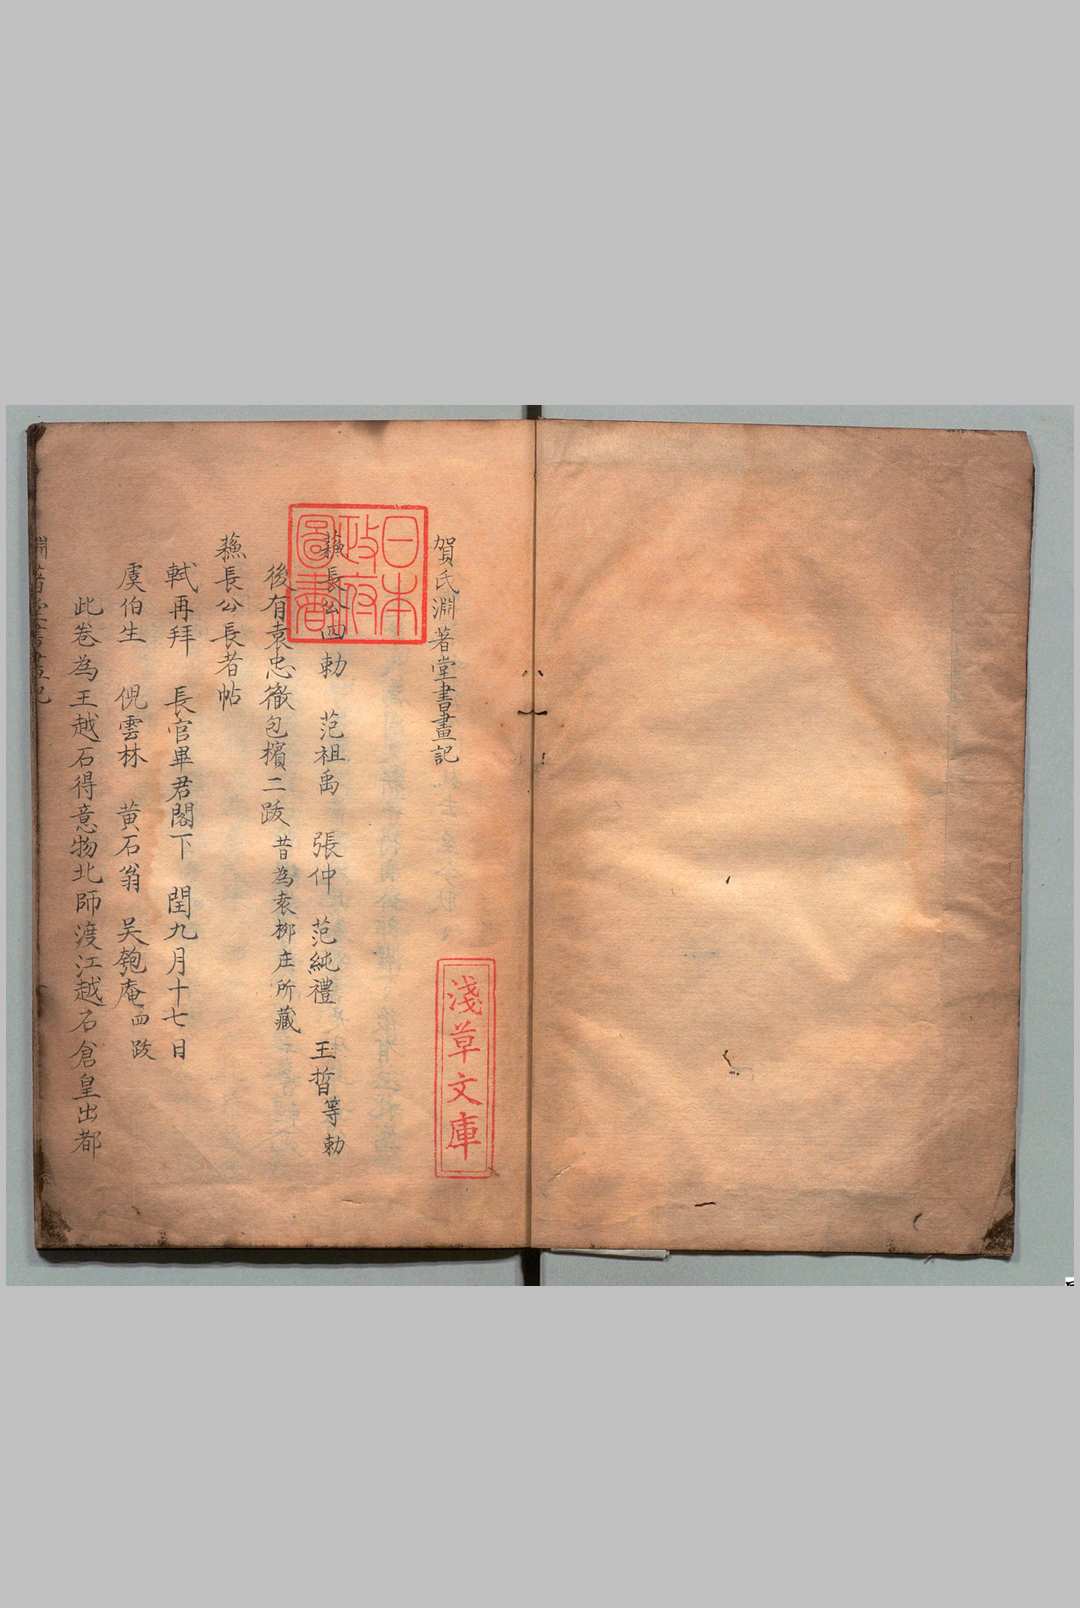 賀氏淵著堂書畫記
日本
政府
圖書
淺草文庫
蘓長公四勅　范祖禹　張仲　范純禮　王晢等勅
後有袁忠徹包𢹂二跋　昔為袁柳庄所藏
蘓長公長者帖
軾再拜　長官畢君閣下　閏九月十七日
虞伯生　倪雲林　黄石翁　吴匏庵四跋
此卷為王越石得意物北師渡江越石倉皇出都
淵著堂書畫記